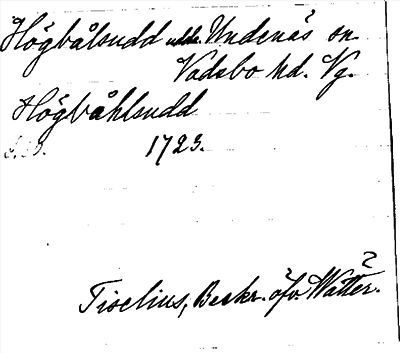 Högbålsudd udde. Undenäs sn.
Vadsbo hd. Vg.
Högbåhlsudd
1723.
2
Tiselius, Beskr. öfv. Wätter.